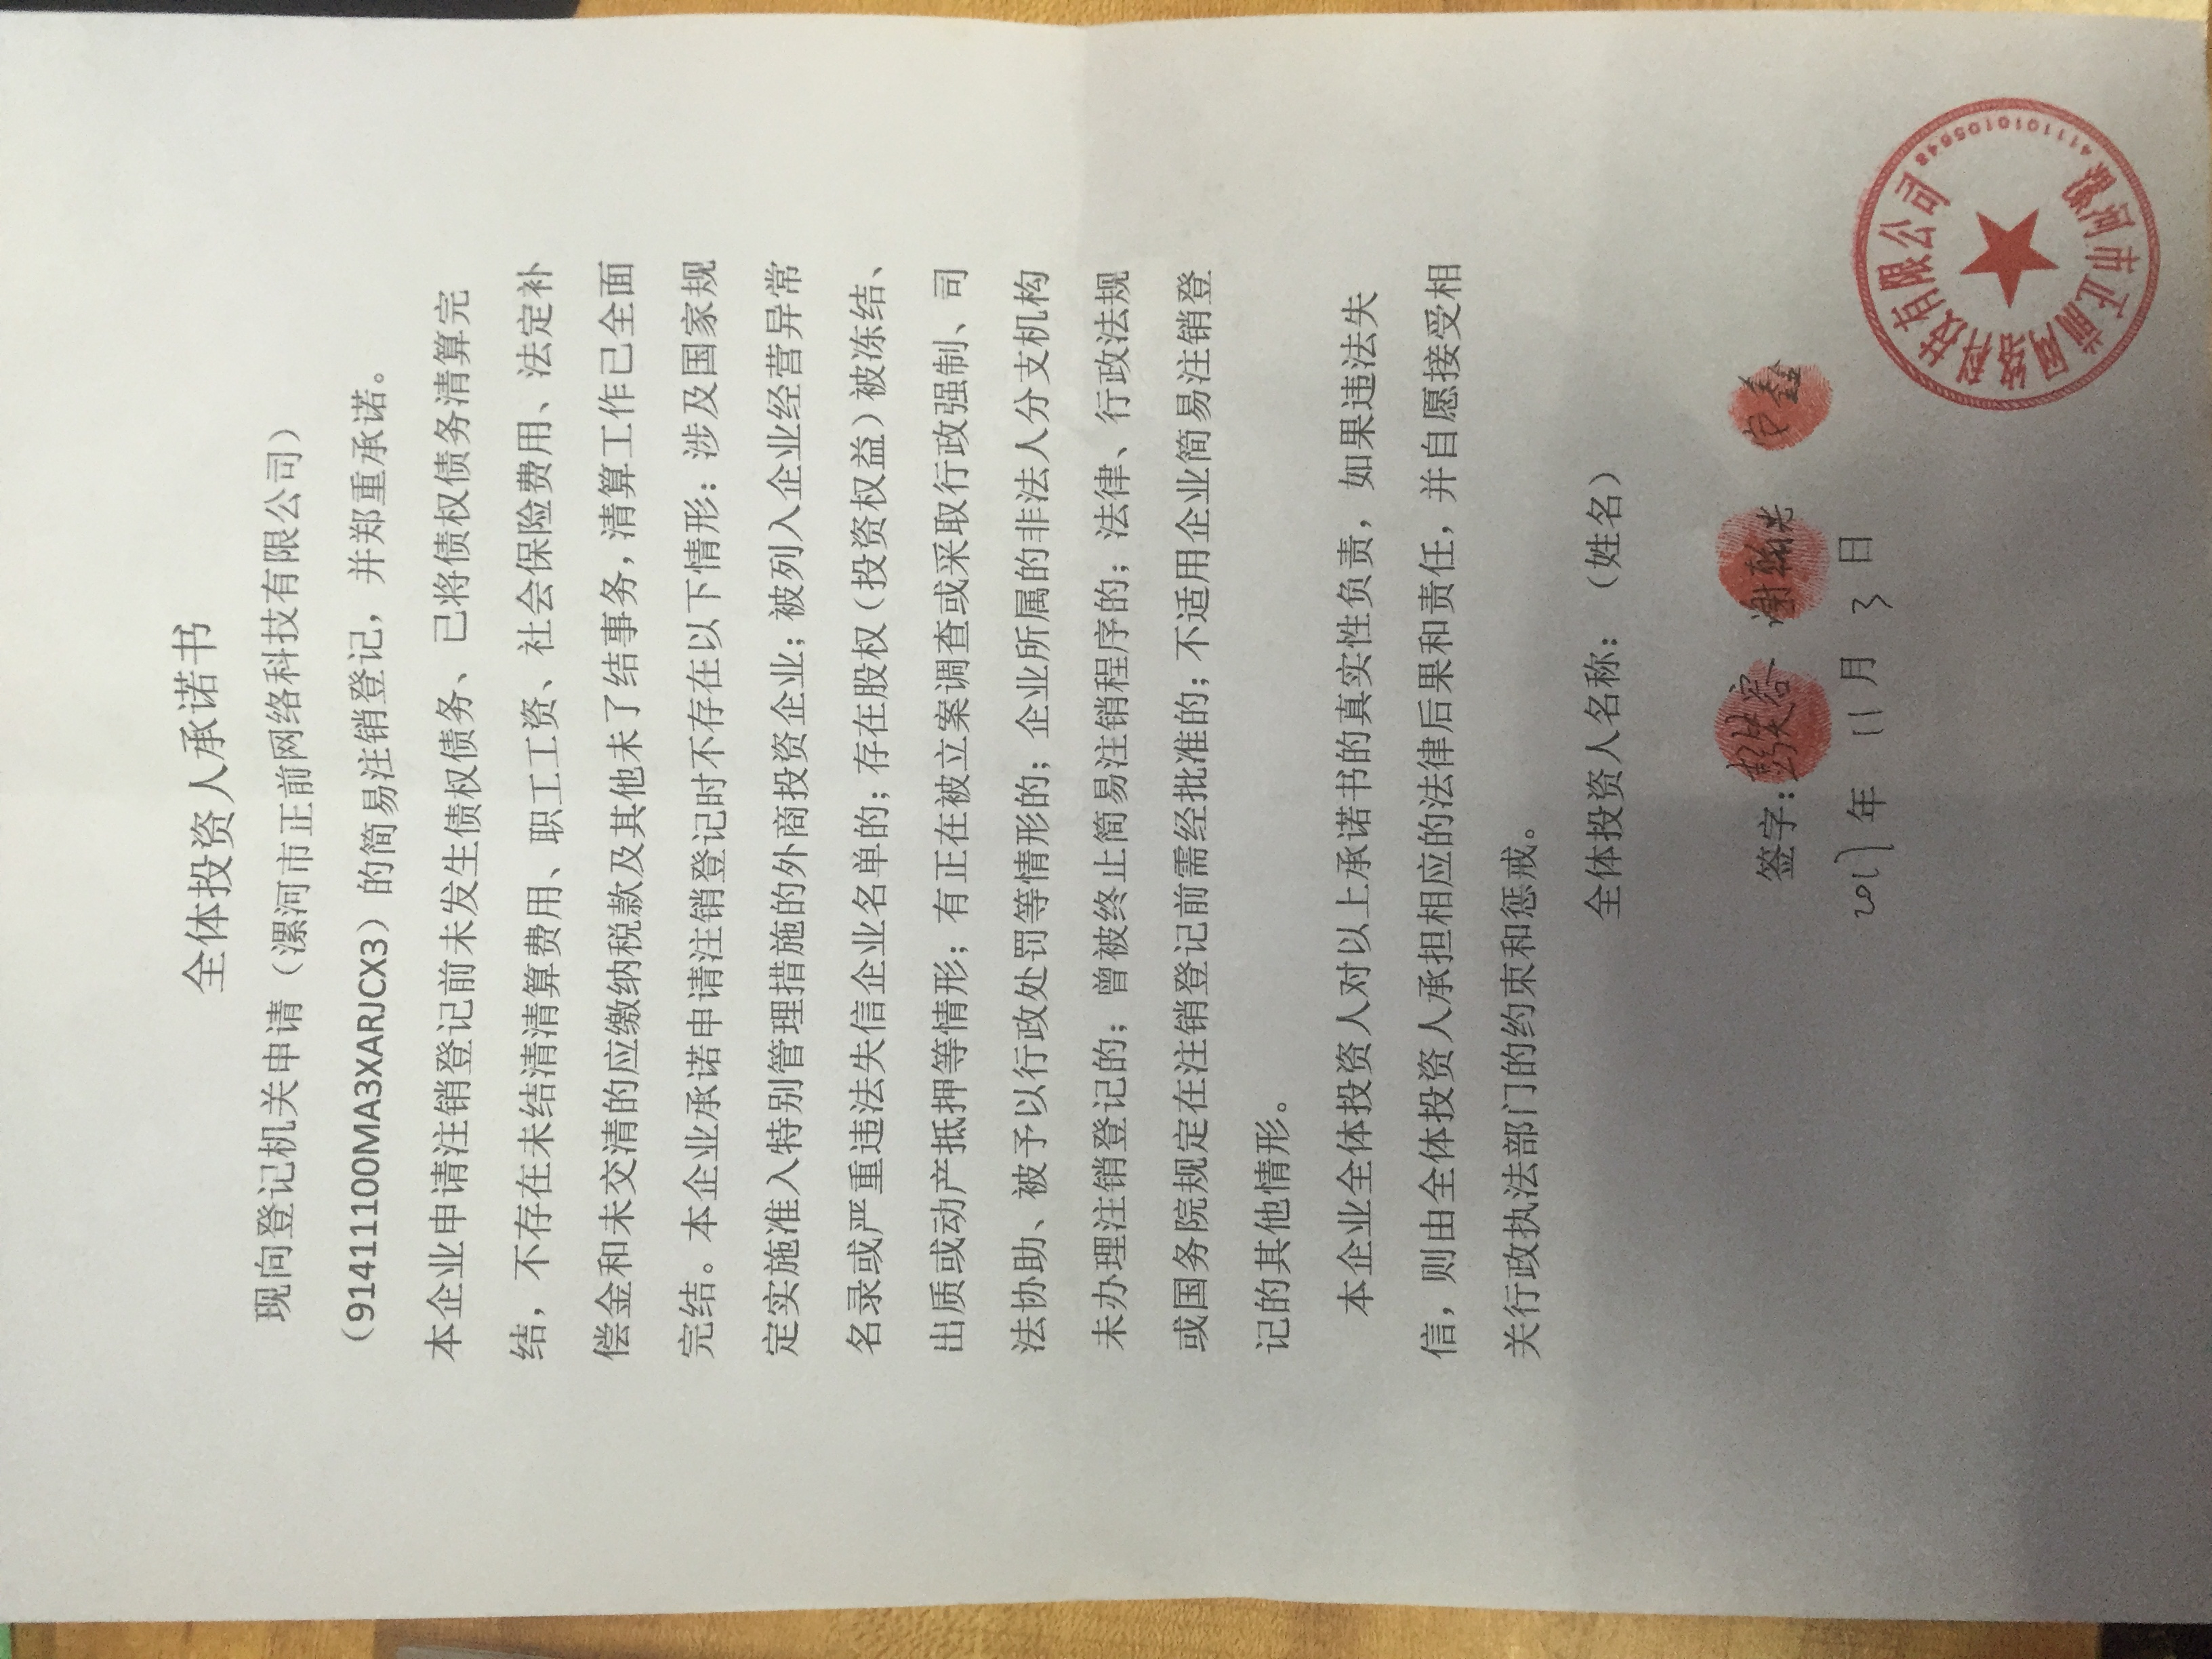 全体投资人承诺书
现向登记机关申请（漯河市正前网络科技有限公司）
（91411100MA3XARJCX3）的简易注销登记，并郑重承诺。
本企业申请注销登记前未发生债权债务、已将债权债务清算完
结，不存在未结清清算费用、职工工资、社会保险费用、法定补
偿金和未交清的应缴纳税款及其他未了结事务，清算工作已全面
完结。本企业承诺申请注销登记时不存在以下情形：涉及国家规
定实施准入特别管理措施的外商投资企业；被列入企业经营异常
名录或严重违法失信企业名单的；存在股权（投资权益）被冻结、
出质或动产抵押等情形；有正在被立案调查或采取行政强制、司
法协助、被予以行政处罚等情形的；企业所属的非法人分支机构
未办理注销登记的；曾被终止简易注销程序的；法律、行政法规
或国务院规定在注销登记前需经批准的；不适用企业简易注销登
记的其他情形。
本企业全体投资人对以上承诺书的真实性负责，如果违法失
信，则由全体投资人承担相应的法律后果和责任，并自愿接受相
关行政执法部门的约束和惩戒。
全体投资人名称：（姓名）
签字：
2017年 11月 3日
漯河市正前网络科技有限公司